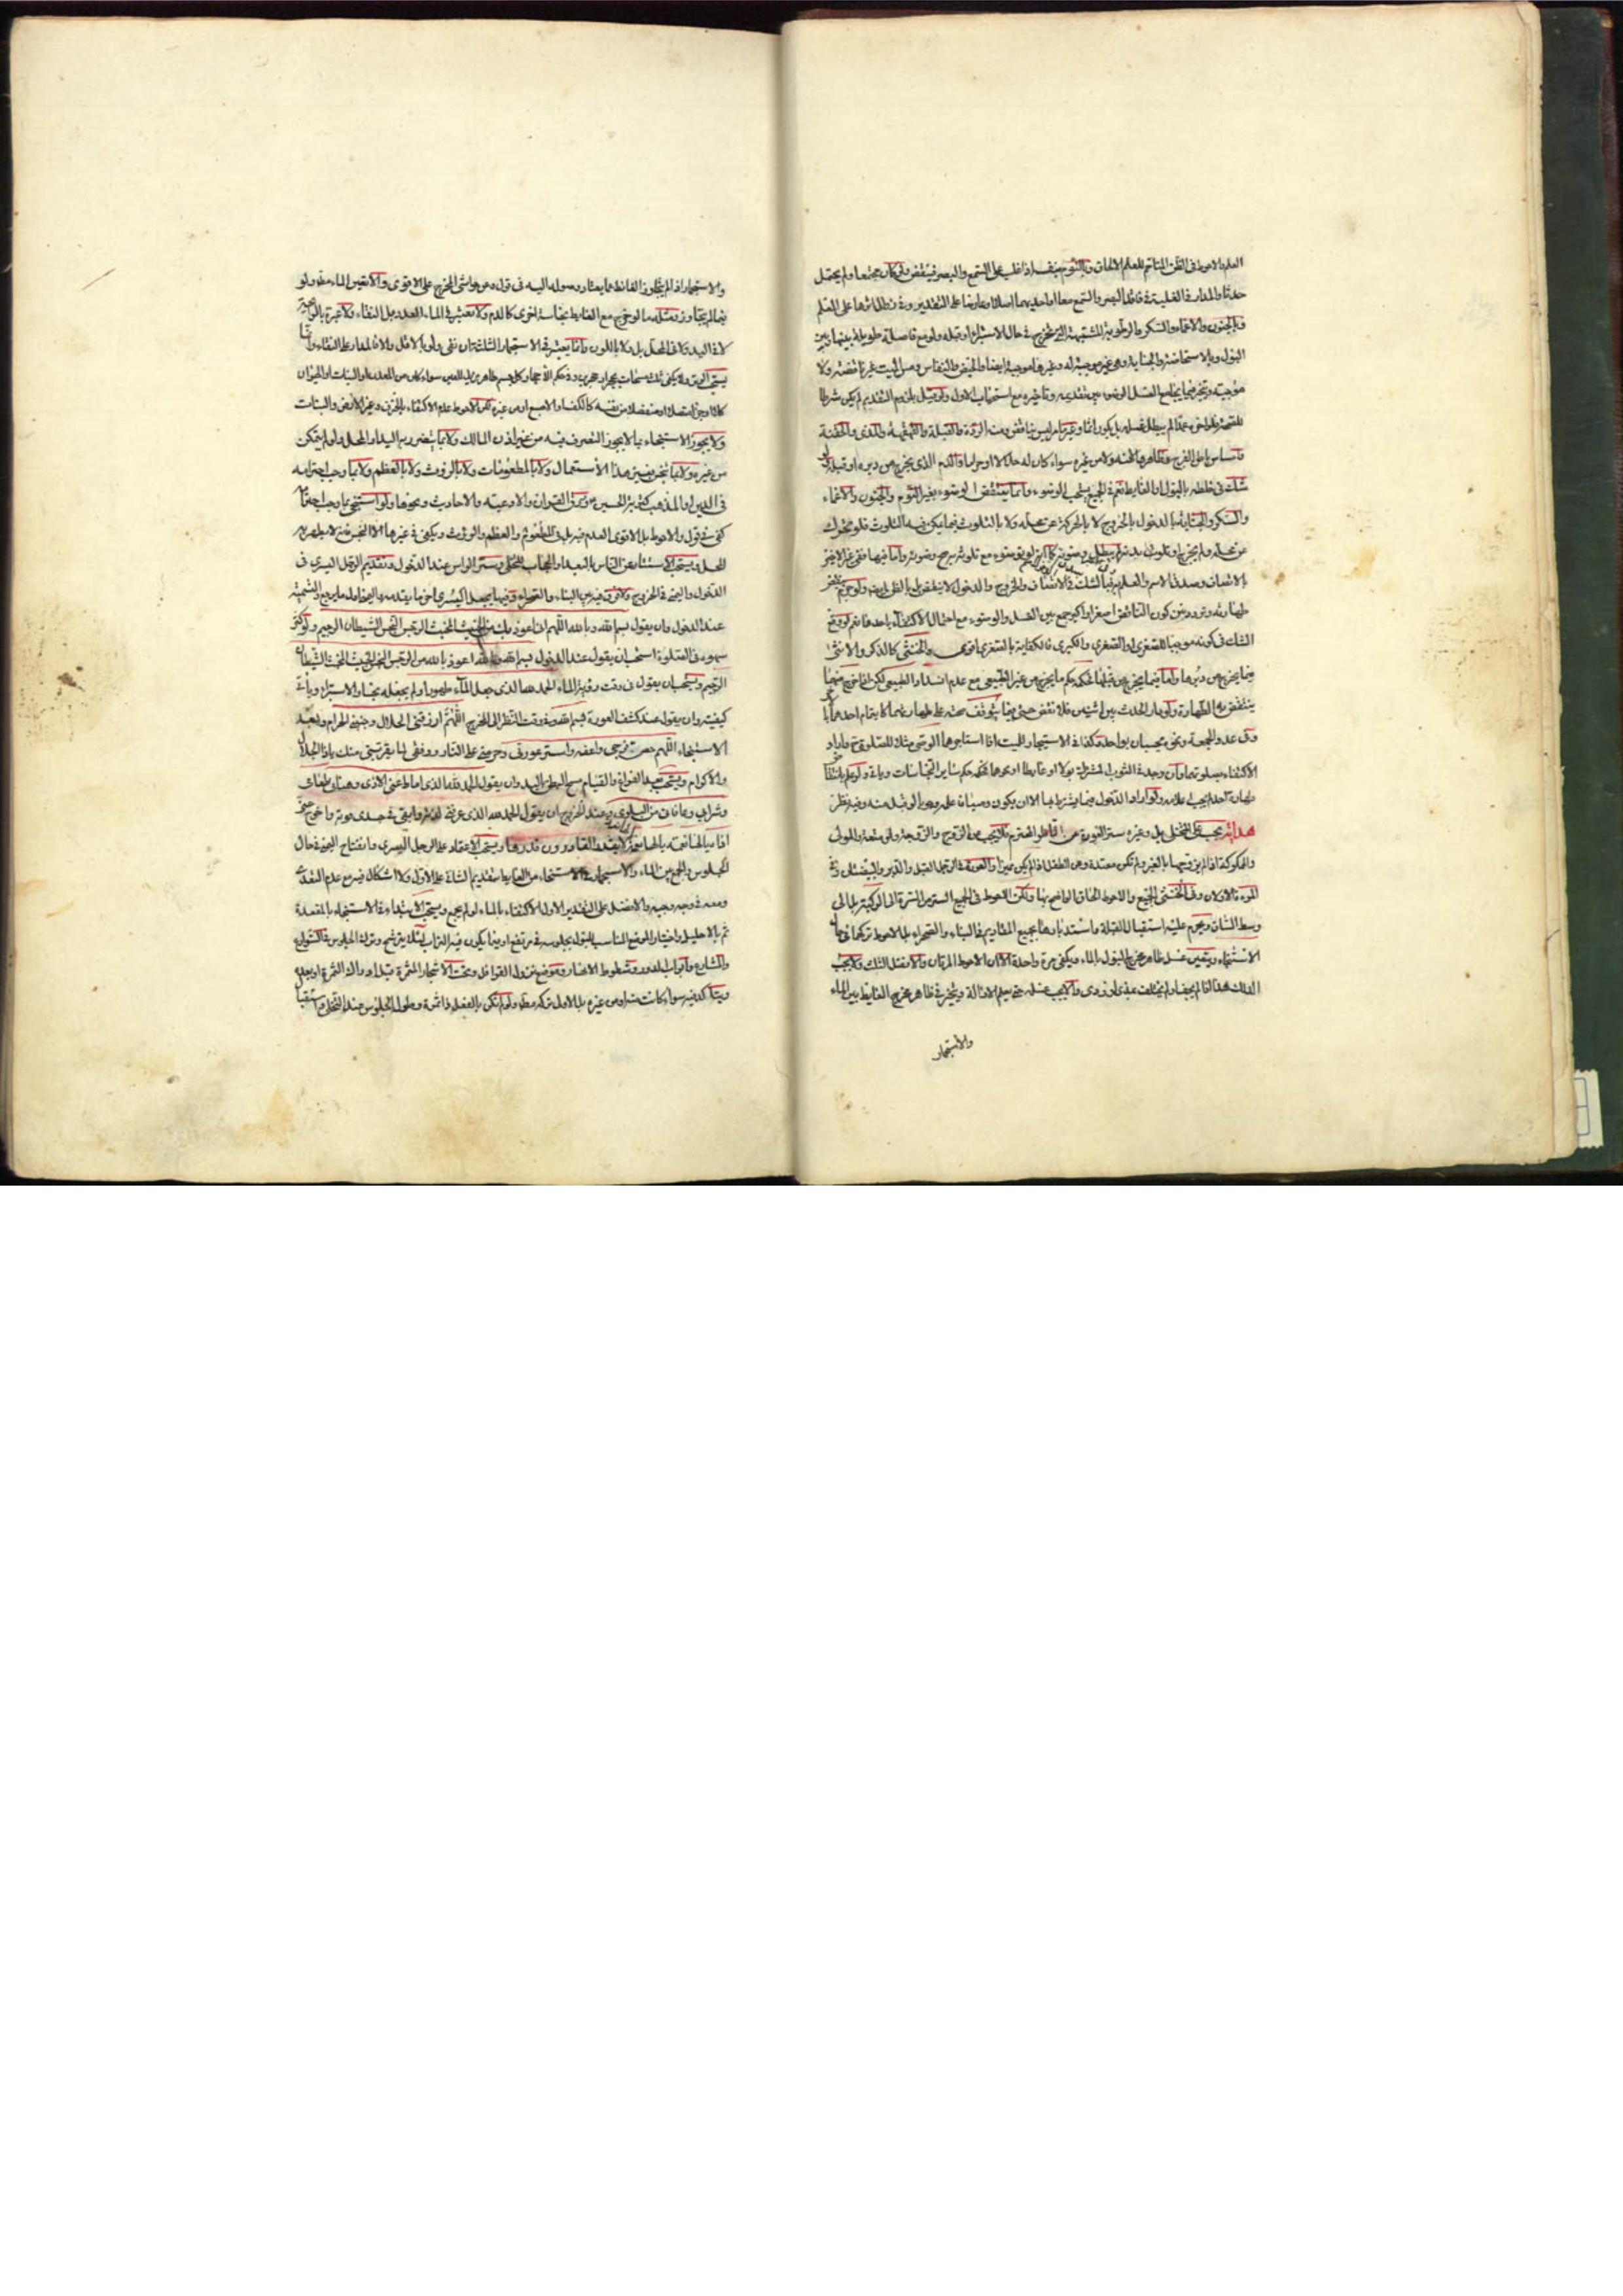 العلم والاحوط فى الظن المتاخم للعلم الالحاق وبالنوم بنفسه اذا غلب على السمع والبصر فينقض وان كان مجتمعا ولم يحتمل
حدثا والمدار فى الغلبة فاقد البصر والسمع معا او احديهما
وبالجنون والاغماء والسكر والرطوبة المشتبهة التى تخرج فى حال الاستبراء او قبله ولو مع فاصلة طويلة بينها وبين
البول وبالاستحاضة والجنابة وهى غير موجبة له وغيرها موجبة ايضا والحيض والنفاس ومس الميت غير ناقضة ولا
موجبة وتخير فيما يجامع الغسل الوضوء بين تقديمه وتاخيره مع استحباب الاول ولو قيل بلزوم التقديم لم يكن شرطا
للصحة فلو اخره عمدا لم يبطل غسله بل يكون اثما وغير ما مر ليس بناقض ومنه الردة والقبلة والقهقهة والمذى والحقنة
ومساس باطن الفرج وظاهره منه ولا من غيره سواء كان له حلالا او حراما والدم الذى يخرج من دبره او قبله ولو
شك فى خلطه بالبول او الغايط نعم فى الجميع يستحب الوضوء وانما ينتقض الوضوء بغير النوم والجنون والاغماء
والسكر والجنابة بالدخول بالخروج لا بالحركة عن محله ولا بالتلوث فيما يمكن فيه التلوث فلو تحرك
عن محله ولم يخرج او تلوث به
بالانسان وصدق الاسم والعلم
طهارته وتردد بين كون الناقض اصغر او اكبر جمع بين الغسل والوضوء مع احتمال الاكتفاء باحدهما نعم لو وقع
الشك فى كونه موجبا للصغرى او الصغرى والكبرى فالكفاية بالصغرى اقوى والخنثى كالذكر والانثى
فيما يخرج من دبرها واما فيما يخرج من قبلها فحكمه حكم ما يخرج من غير الطبيعى مع عدم انسداد الطبيعى لكن اذا خرج منهما
ينتقض به الطهارة ولو دار الحدث بين اثنين فلا نقض حتى فيما يتوقف صحته على طهارتهما كايتمام احدهما بالاخر
وفى عدد الجمعة ونحو يحسبان بواحد وكذا فى الاستيجار للميت اذا استاجرهما الوصى
الاكتفاء بصلوتهما وان وجد فى الثوب المشترك بولا او غايطا او نحوهما فحكمه حكم ساير النجاسات
طهارة احدهما يجب اعلامه ولو اراد الدخول فيما يشترط بها الا ان يكون وصيا
هداية يجب على المتخلى بل وغيره ستر العورة عن الناظر المحترم فلا يجب من الزوج والزوجة ولو متعة والمولى
والمملوكة اذا لم يزوجها بالغير ولم تكن معتدة ومن الطفل اذا لم يكن مميزا والعورة فى الرجل القبل والدبر والبيضتان وفى
المرءة الاولان وفى الخنثى الجميع والاحوط الحاق الواضح بها ولكن الاحوط فى الجميع الستر من السرة الى الركبة بل الى
وسط الساق ويحرم عليه استقبال القبلة واستدبارها بجميع المقاديم فى البناء والصحراء بل الاحوط تركهما فى حال
الاستنجاء ويتعين غسل ظاهر مخرج البول بالماء ويكفى مرة واحدة الا ان الاحوط المرتان والافضل الثلث ولا يجب
الدلك هذا اذا لم يجف او لم يختلف بمذى او ودى والا يجب غسله حتى يعلم الازالة ويتخير فى ظاهر مخرج الغايط بين الماء
والاستجمار
والاستجمار اذا لم يتجاوز الغائط عما يعتاد وصوله اليه فى قول ومن حواشى المخرج على الاقوى والا تعين الماء مطلقا ولو
فيما لم يتجاوز ومثله ما لو خرج مع الغايط نجاسة اخرى كالدم ولا تعتبر فى الماء العدد بل النقاء ولا عبرة بالرائحة
لا فى اليد ولا فى المحل بل ولا باللون وانما يعتبر فى الاستجمار الثلثة ان نقى ولو بالاقل والا فالمدار على النقاء وانما
كاملا وجزء متصلا او منفصلا من نفسه كالكف او الاصبع او من غيره لكن الاحوط عدم الاكتفاء بالخزف وغير الارض والنبات
ولا يجوز الاستنجاء بما لا يجوز التصرف فيه من غير اذن المالك ولا بما يتضرر به اليد او المحل ولو لم يتمكن
من غيره ولا بما تنجس بغير هذا الاستعمال ولا بالمطعومات ولا بالروث ولا بالعظم ولا بما وجب احترامه
فى الدين او المذهب كتربة الحسين وورق القران والادعية والاحاديث ونحوها ولو استنجى بما وجب احترامه
كفى فى قول والاحوط بل الاقوى العدم فيه بل فى المطعوم والعظم والروث ويكفى فى غيرها الا النجس فانه لا يطهر به
المحل ويستحب الاستتار عن الناس بالبعد او الحجاب للتخلى وستر الراس عند الدخول وتقديم الرجل اليسرى فى
الدخول واليمنى فى الخروج ولا فرق فيه بين البناء والصحراء وفيها يجعل اليسرى اخر ما يقدمه واليمنى اول ما يرجع والتسمية
عند الدخول وان يقول بسم الله وبالله اللهم انى اعوذ بك من الخبيث المخبث الرجس النجس الشيطان الرجيم ولو كثر
سهوه فى الصلوة استحب ان يقول عند الدخول بسم الله وبالله اعوذ بالله من الرجس النجس الخبيث المخبث الشيطان
الرجيم ويستحب ان يقول فى وقت رؤية الماء الحمد لله الذى جعل الماء طهورا ولم يجعله نجسا والاستبراء وياتى
كيفيته وان يقول عند كشف العورة بسم الله وفى وقت النظر الى المخرج اللهم ارزقنى الحلال وجنبنى الحرام وبعد
الاستنجاء اللهم حصن فرجى واعفه واستر عورتى وحرمنى على النار ووفقنى لما يقربنى منك يا ذا الجلال
والاكرام ويستحب بعد الفراغ والقيام مسح البطن باليد وان يقول الحمد لله الذى اماط عنى الاذى وهنانى طعامى
وشرابى وعافانى من البلوى وعند الخروج ان يقول الحمد لله الذى عرفنى لذته وابقى فى جسدى قوته واخرج عنى
اذاه يا لها نعمة يا لها نعمة لا يقدر القادرون قدرها ويستحب الاعتماد على الرجل اليسرى وانفتاح اليمنى فى حال
الجلوس والجمع بين الماء والاستجمار فى الاستنجاء من الغايط بتقديم الثانى على الاول ولا اشكال فيه مع عدم التعدى
ومعه فى وجه وجيه والافضل على التقدير الاول الاكتفاء بالماء لو لم يجمع ويستحب الابتداء فى الاستنجاء بالمقعدة
ثم بالاحليل واختيار الموضع المناسب للبول بجلوسه فى مرتفع او فيما يكون فيه التراب لئلا يترشح وترك الجلوس فى الشوارع
والمشارع وابواب الدور وشطوط الانهار وموضع نزول القوافل وتحت الاشجار المثمرة
ويتاكد فيه سواء كانت منه او من غيره بل الاولى تركه مطلقا ولو لم تكن بالفعل ذا ثمرة وطول الجلوس عند التخلى واستقبال